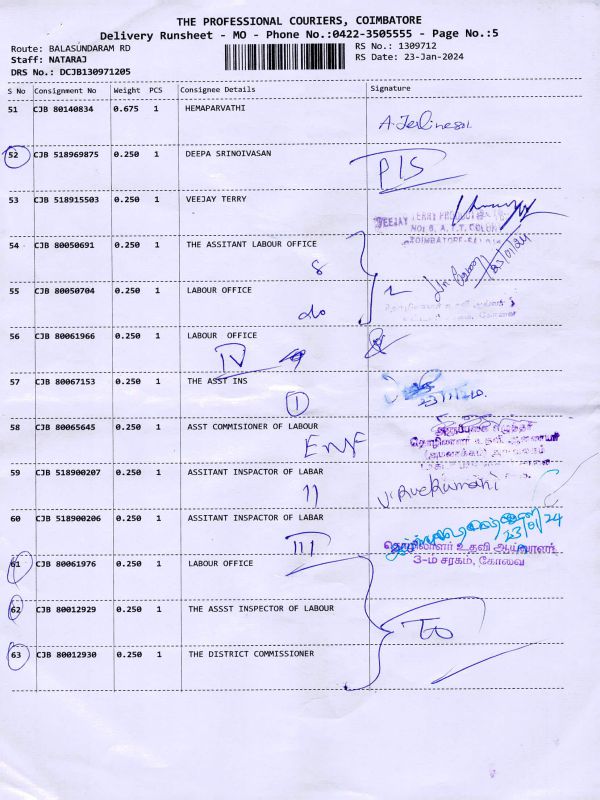 THE PROFESSIONAL COURIERS, COIMBATORE
Delivery Runsheet - MO - Phone No.:0422-3505555 - Page No.:5
Route: BALASUNDARAM RD
Staff: NATARAJ
DRS No.: DCJB130971205
RS No.: 1309712
RS Date: 23-Jan-2024
S No Consignment No Weight PCS Consignee Details Signature
51 CJB 80140834 0.675 1 HEMAPARVATHI
52 CJB 518969875 0.250 1 DEEPA SRINOIVASAN
P/S
53 CJB 518915503 0.250 1 VEEJAY TERRY
VEEJAY TERRY
54 CJB 80050691 0.250 1 THE ASSITANT LABOUR OFFICE
23/01/24
55 CJB 80050704 0.250 1 LABOUR OFFICE
do
56 CJB 80061966 0.250 1 LABOUR OFFICE
IV
57 CJB 80067153 0.250 1 THE ASST INS
1
58 CJB 80065645 0.250 1 ASST COMMISIONER OF LABOUR
தொழிலாளர் உதவி ஆணையர்
59 CJB 518900207 0.250 1 ASSITANT INSPACTOR OF LABAR
11
60 CJB 518900206 0.250 1 ASSITANT INSPACTOR OF LABAR
23/01/24
III
தொழிலாளர் உதவி ஆய்வாளர்
3-ம் சரகம், கோவை
61 CJB 80061976 0.250 1 LABOUR OFFICE
62 CJB 80012929 0.250 1 THE ASSST INSPECTOR OF LABOUR
63 CJB 80012930 0.250 1 THE DISTRICT COMMISSIONER